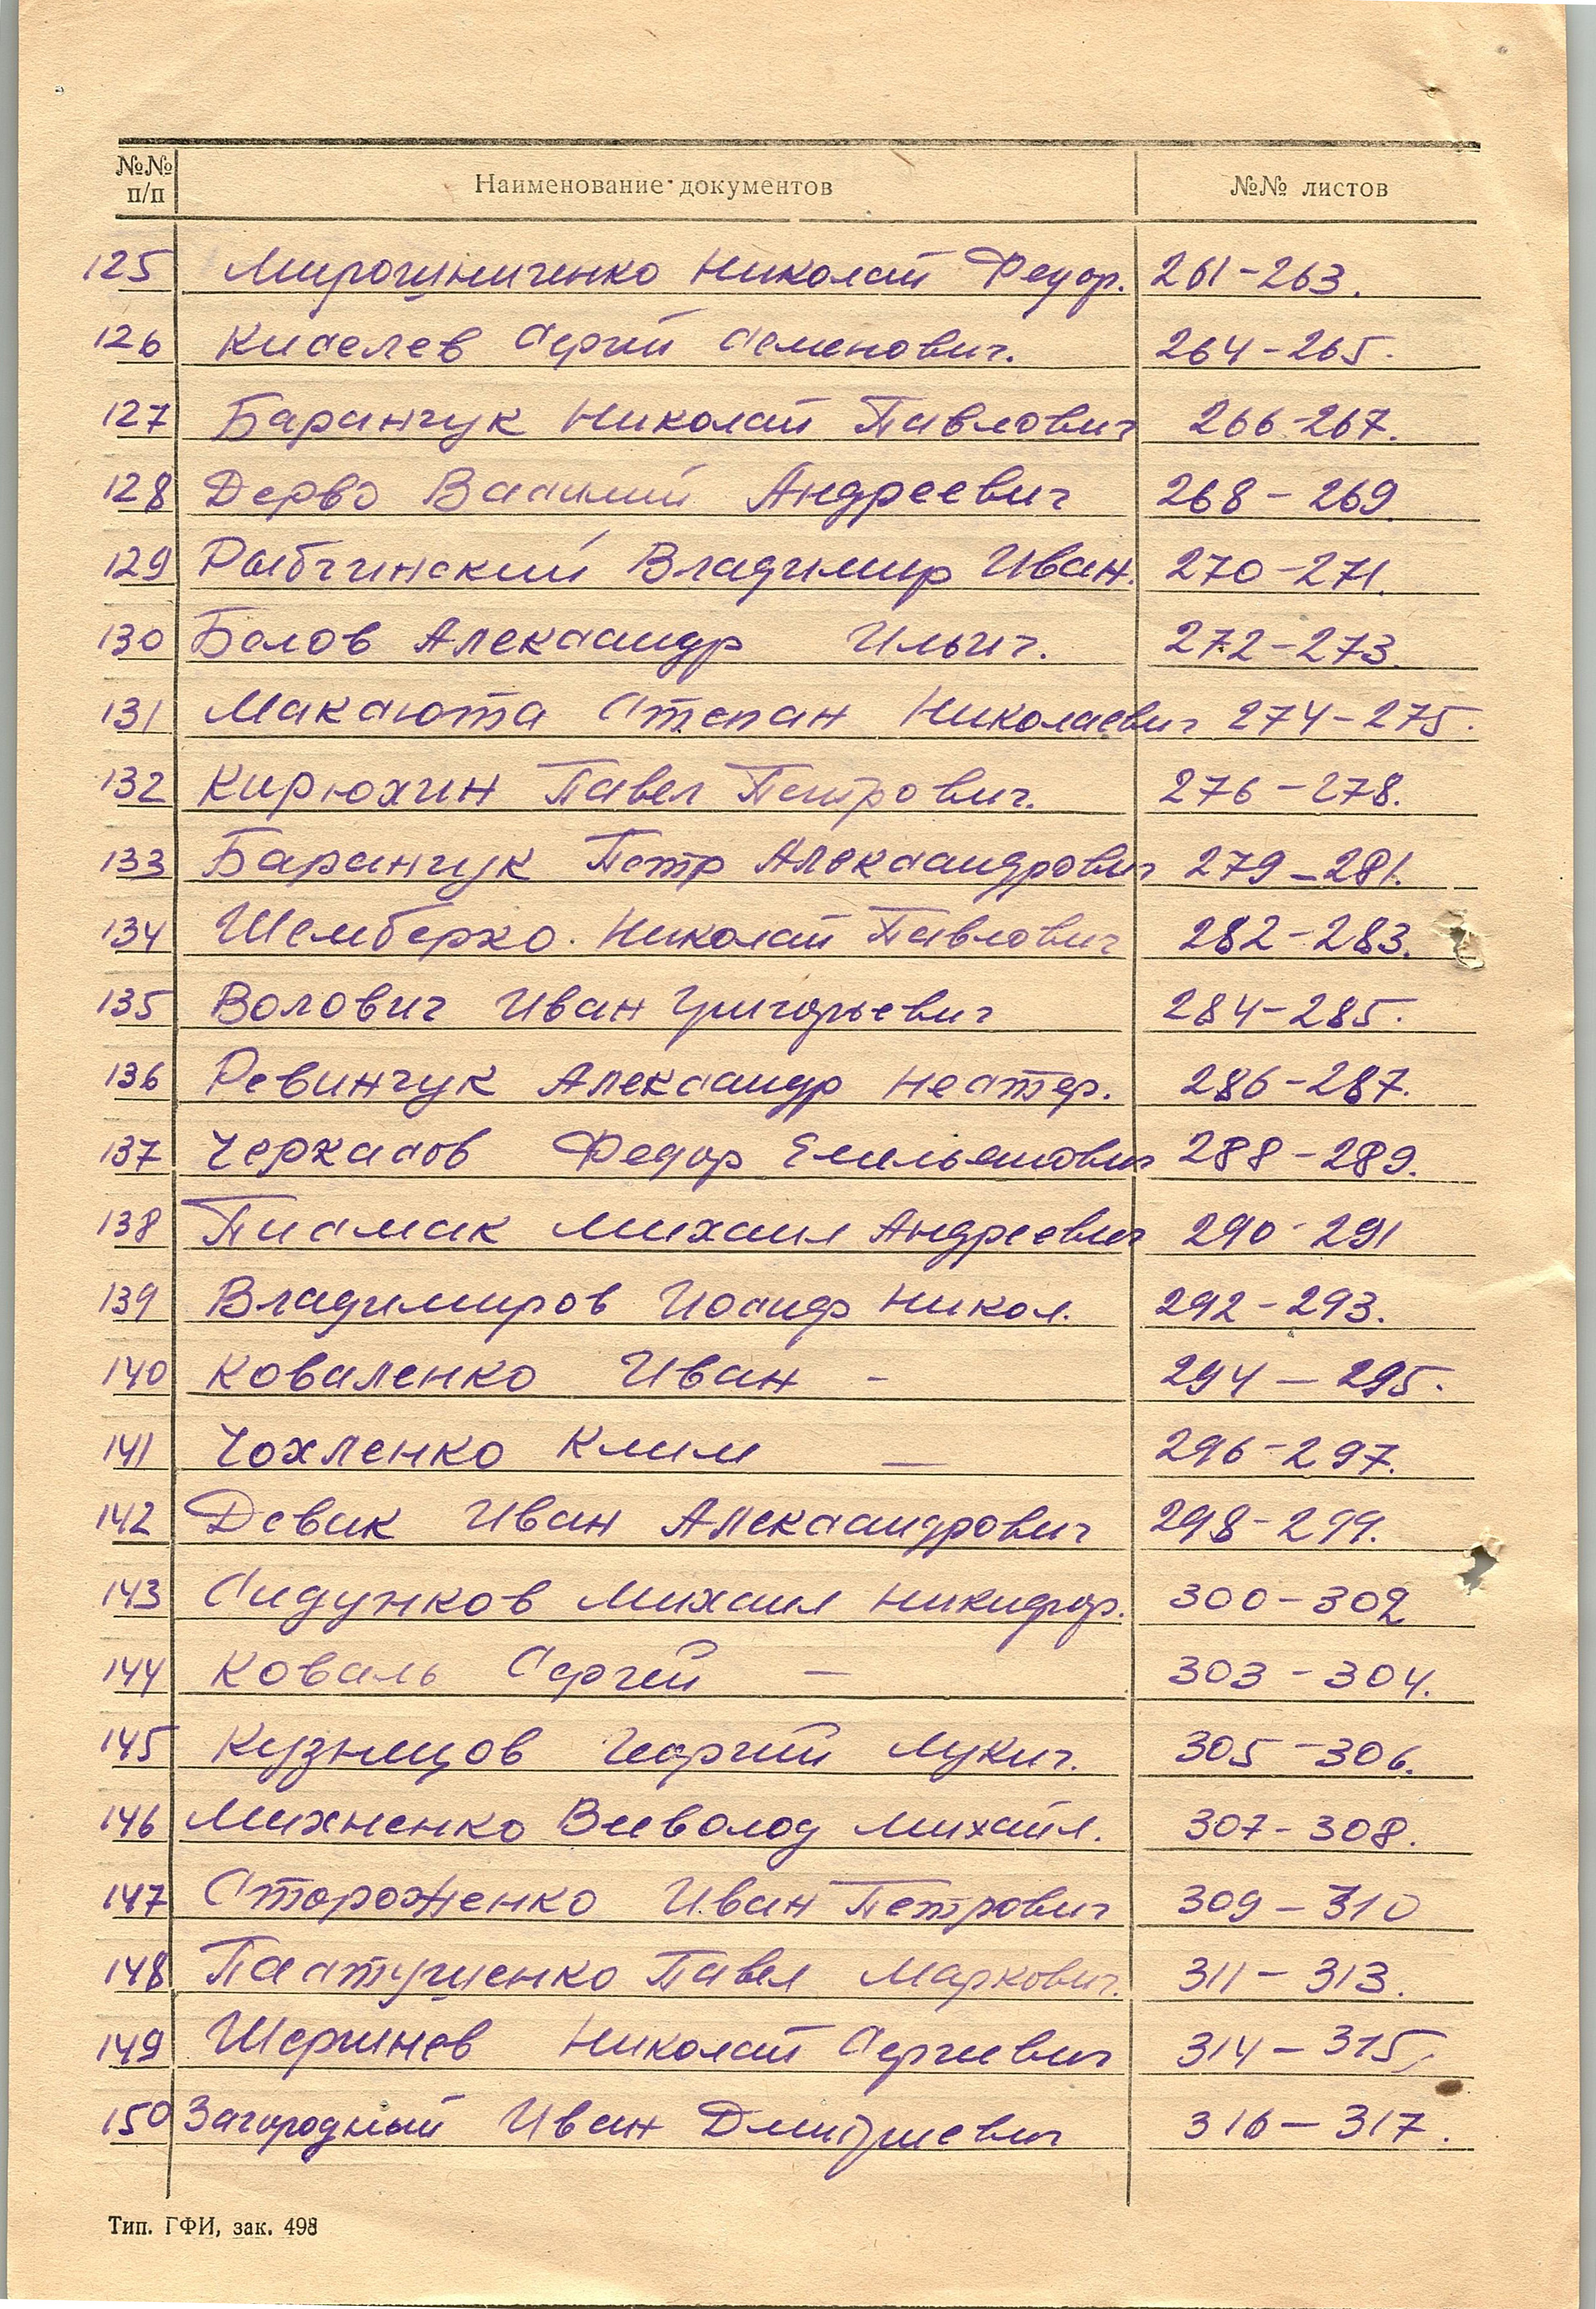 №№ п/п Наименование документов №№ листов
125 Мирошниченко Николай Федор. 261-263.
126 Киселев Сергй Семенович. 264-265.
127 Баранчук Николай Павлович 266-267.
128 Дерво Василий Андреевич 268-269.
129 Рыбчинский Владимир Иван. 270-271.
130 Белов Александр Ильич. 272-273.
131 Максюта Степан Николаевич 274-275.
132 Кирюхин Павел Петрович. 276-278.
133 Баранчук Петр Александрович 279-281.
134 Шемберко. Николай Павлович 282-283.
135 Волович Иван Григорьевич 284-285.
136 Ревинчук Александр Нестер. 286-287.
137 Черкасов Федор Емельянович 288-289.
138 Писмак Михаил Андреевич 290-291
139 Владимиров Иосиф Никол. 292-293.
140 Коваленко Иван - 294-295.
141 Чохленко Клим — 296-297.
142 Девик Иван Александрович 298-299.
143 Сидунков Михаил Никифор. 300-302
144 Коваль Сергей — 303-304.
145 Кузнецов Георгий Лукич. 305-306.
146 Михненко Всеволод Михайл. 307-308.
147 Стороженко Иван Петрович 309-310
148 Пастушенко Павел Маркович. 311-313.
149 Шершнев Николай Сергеевич 314-315.
150 Загородный Иван Дмитриевич 316-317.
Тип. ГФИ, зак. 498